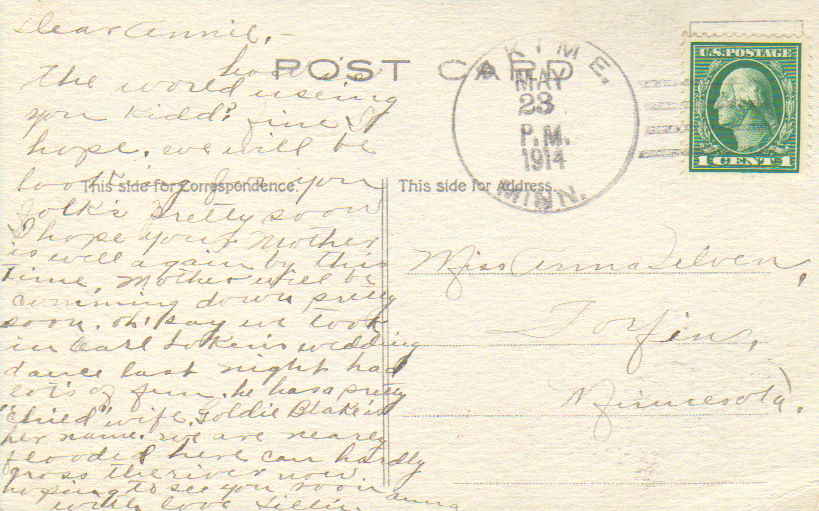 Dear Annie,-
how is
the world useing
you Kidd? fine I
hope. we will be
looking for you
folk's pretty soon
I hope your Mother
is well again by this
time. Mother will be
cumming down pretty
soon. oh! say we took
in Earl wedding
dance last night had
lot's of fun. he has a pretty
"child" wife. Goldie Blake is
her name. we are nearly
flooded here can hardly
cross the river now
hoping to see you soon
with love
POST CARD
This side for Correspondence.
This side for Address.
MAY
23
P.M.
1914
MINN.
U.S. POSTAGE
1 CENT 1
Miss Anna
Torfin,
Minnesota.